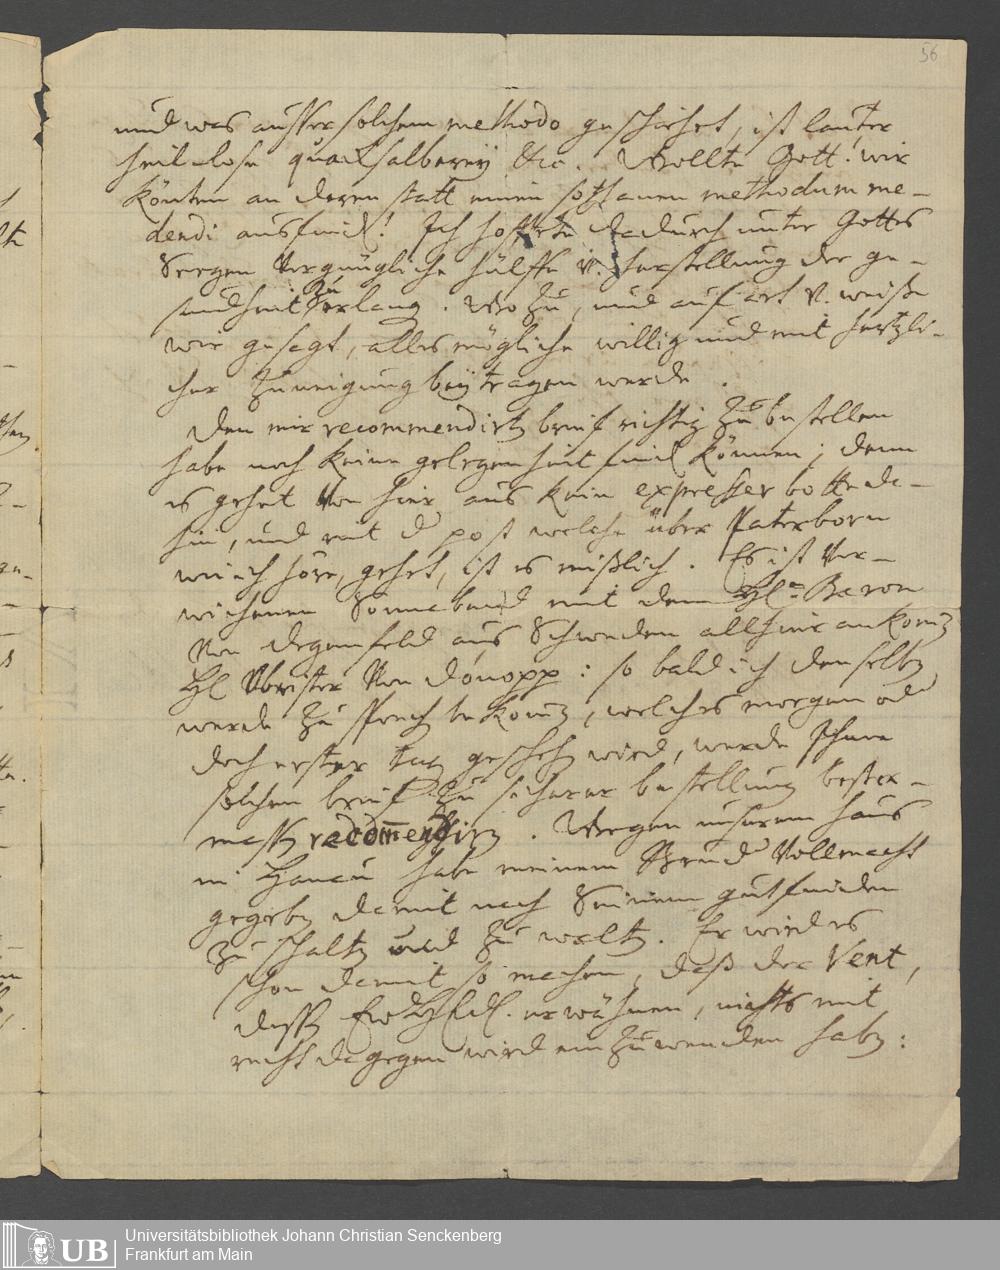 56
und was ausser solchem methodo geschiehet, ist lauter
heil-lose quacksalberey etc. Wollte Gott! wir
könten an deren statt einen sothanen methodum me-
dendi ausfind! Ich hoffete dadurch unter Gottes
Seegen vergnügliche hülffe u. herstellung der ge-
sundheit zu erlang. Wozu, und auf art u. weiße
wie gesagt, alles mögliche willig und mit hertzli-
cher zuneigung beytragen werde.
Den mir recommendirten brief richtig zu bestellen
habe noch keine gelegenheit find können; denn
es gehet von hier aus kein expresser botte da-
hin, und mit d post welche über Paterborn
wie ich höre, gehet, ist es mißlich. Es ist ver-
wichenen Sonnabend mit dem H. Baron
von Degenfeld aus Schweden allhier ankomen
H. Obrister von Donopp: so bald ich denselben
werde zu sprechen bekomen, welches morgen od
doch erster tag geschehen wird, werde Ihme
solchen brief zu sicherer bestellung bester-
massen recommendiren. Wegen unserem haus
in Hanau habe meinem Bruder Vollmacht
gegeben damit nach Seinem gutfinden
zu schalten und zu walten. Er wird es
schon damit so machen, daß der Vent,
dessen Ew. HEdl. erwähnen, nichts mit
recht dagegen wird einzuwenden haben:
UB
Universitätsbibliothek Johann Christian Senckenberg
Frankfurt am Main